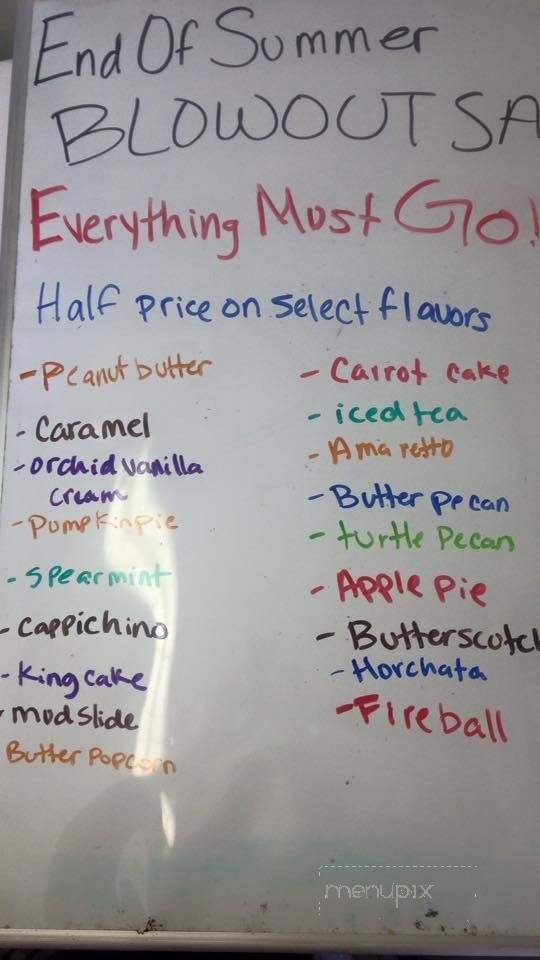 End Of Summer
BLOWOUT SA
Everything Must GO!
Half price on select flavors
- Peanut butter
- Caramel
- orchid vanilla
cream
- Pumpkin pie
- spearmint
- cappichino
- King cake
- mudslide
Butter Popcorn
- Carrot cake
- iced tea
- Amaretto
- Butter pecan
- turtle Pecan
- Apple Pie
- Butterscotch
- Horchata
- Fireball
menupix